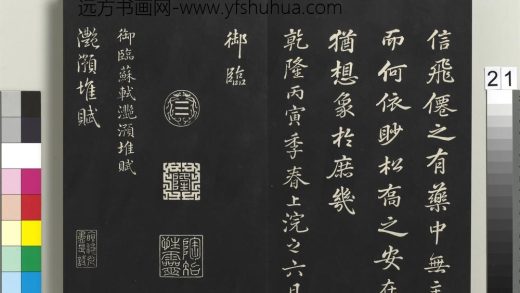 远方书画网-www.yfshuhua.com
信飛僊之有藥中無主
而何依眇松喬之安在
猶想象於庶幾
乾隆丙寅季春上浣之六日
御臨
☰
乾隆
陶冶性靈
御臨蘇軾灔澦堆賦
灔澦堆賦
21